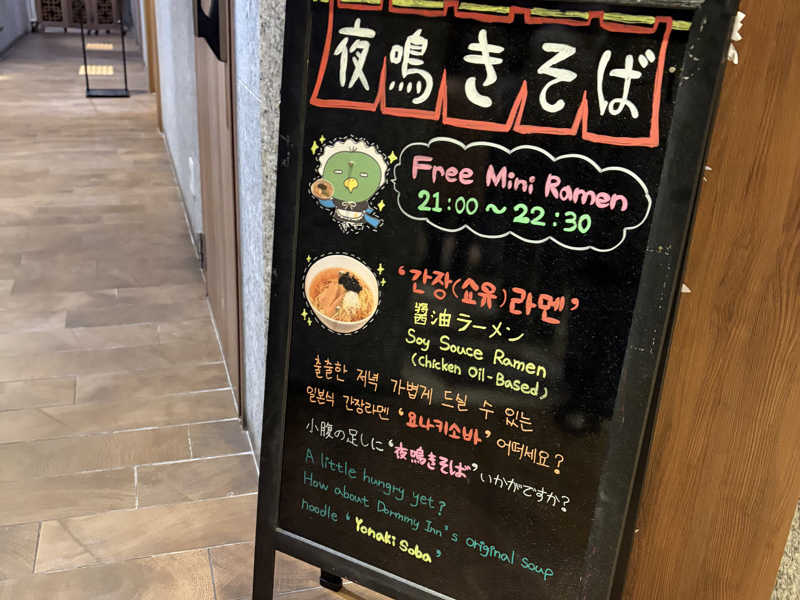 夜鳴きそば
Free Mini Ramen
21:00 ~ 22:30
‘간장(쇼유)라멘’
醤油ラーメン
Soy Souce Ramen
(Chicken Oil-Based)
출출한 저녁 가볍게 드실 수 있는
일본식 간장라멘 ‘요나키소바’ 어떠세요?
小腹の足しに‘夜鳴きそば’いかがですか?
A little hungry yet?
How about Dormmy Inn's original soup
noodle ‘Yonaki Soba’